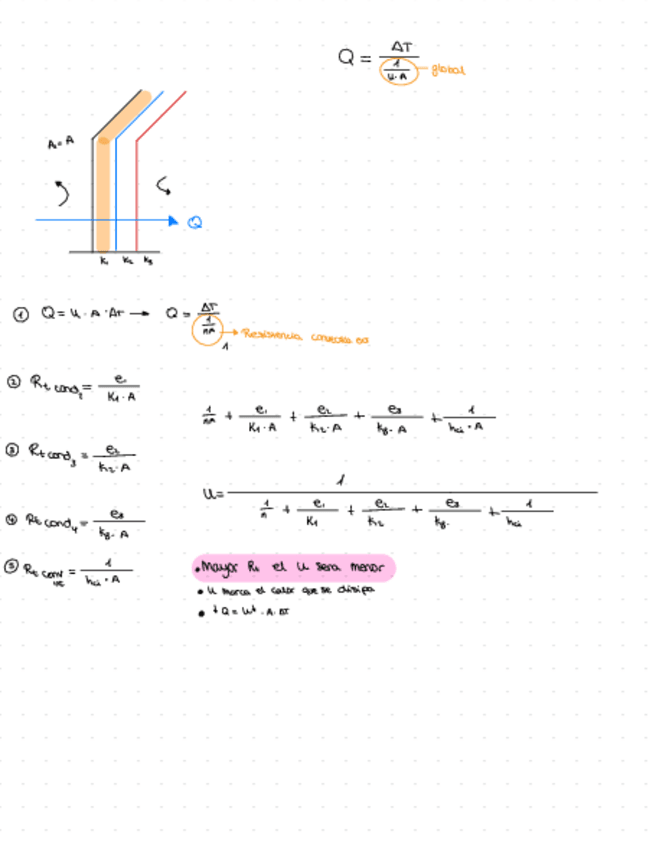 Q = ΔT / (1 / U·A) global
A₀ = A
Q
K₁ K₂ K₃
① Q = U · A · ΔT → Q = ΔT / (1 / hA) → Resistencia
1
② Rt cond₂ = e₁ / (K₁ · A)
1/hA + e₁/(K₁·A) + e₂/(K₂·A) + e₃/(k₃·A) + 1/(hci·A)
③ Rt cond₃ = e₂ / (K₂ · A)
U = 1 / (1/h + e₁/K₁ + e₂/K₂ + e₃/k₃. + 1/hci)
④ Rt cond₄ = e₃ / (k₃ · A)
⑤ Rt conv = 1 / (hci · A)
• Mayor Rt el U sera menor
• U marca el calor que se disipa
• ↓Q = U↓ · A · ΔT